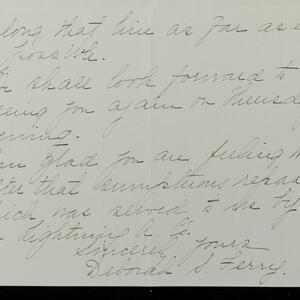 long that line as far as
possible.
shall look forward to
seeing you again on Thursd
evening.
am glad you are feeling
that sumptuous repas
which was served to us by
Lightning
Sincerely yours
Deborah S. Ferry.